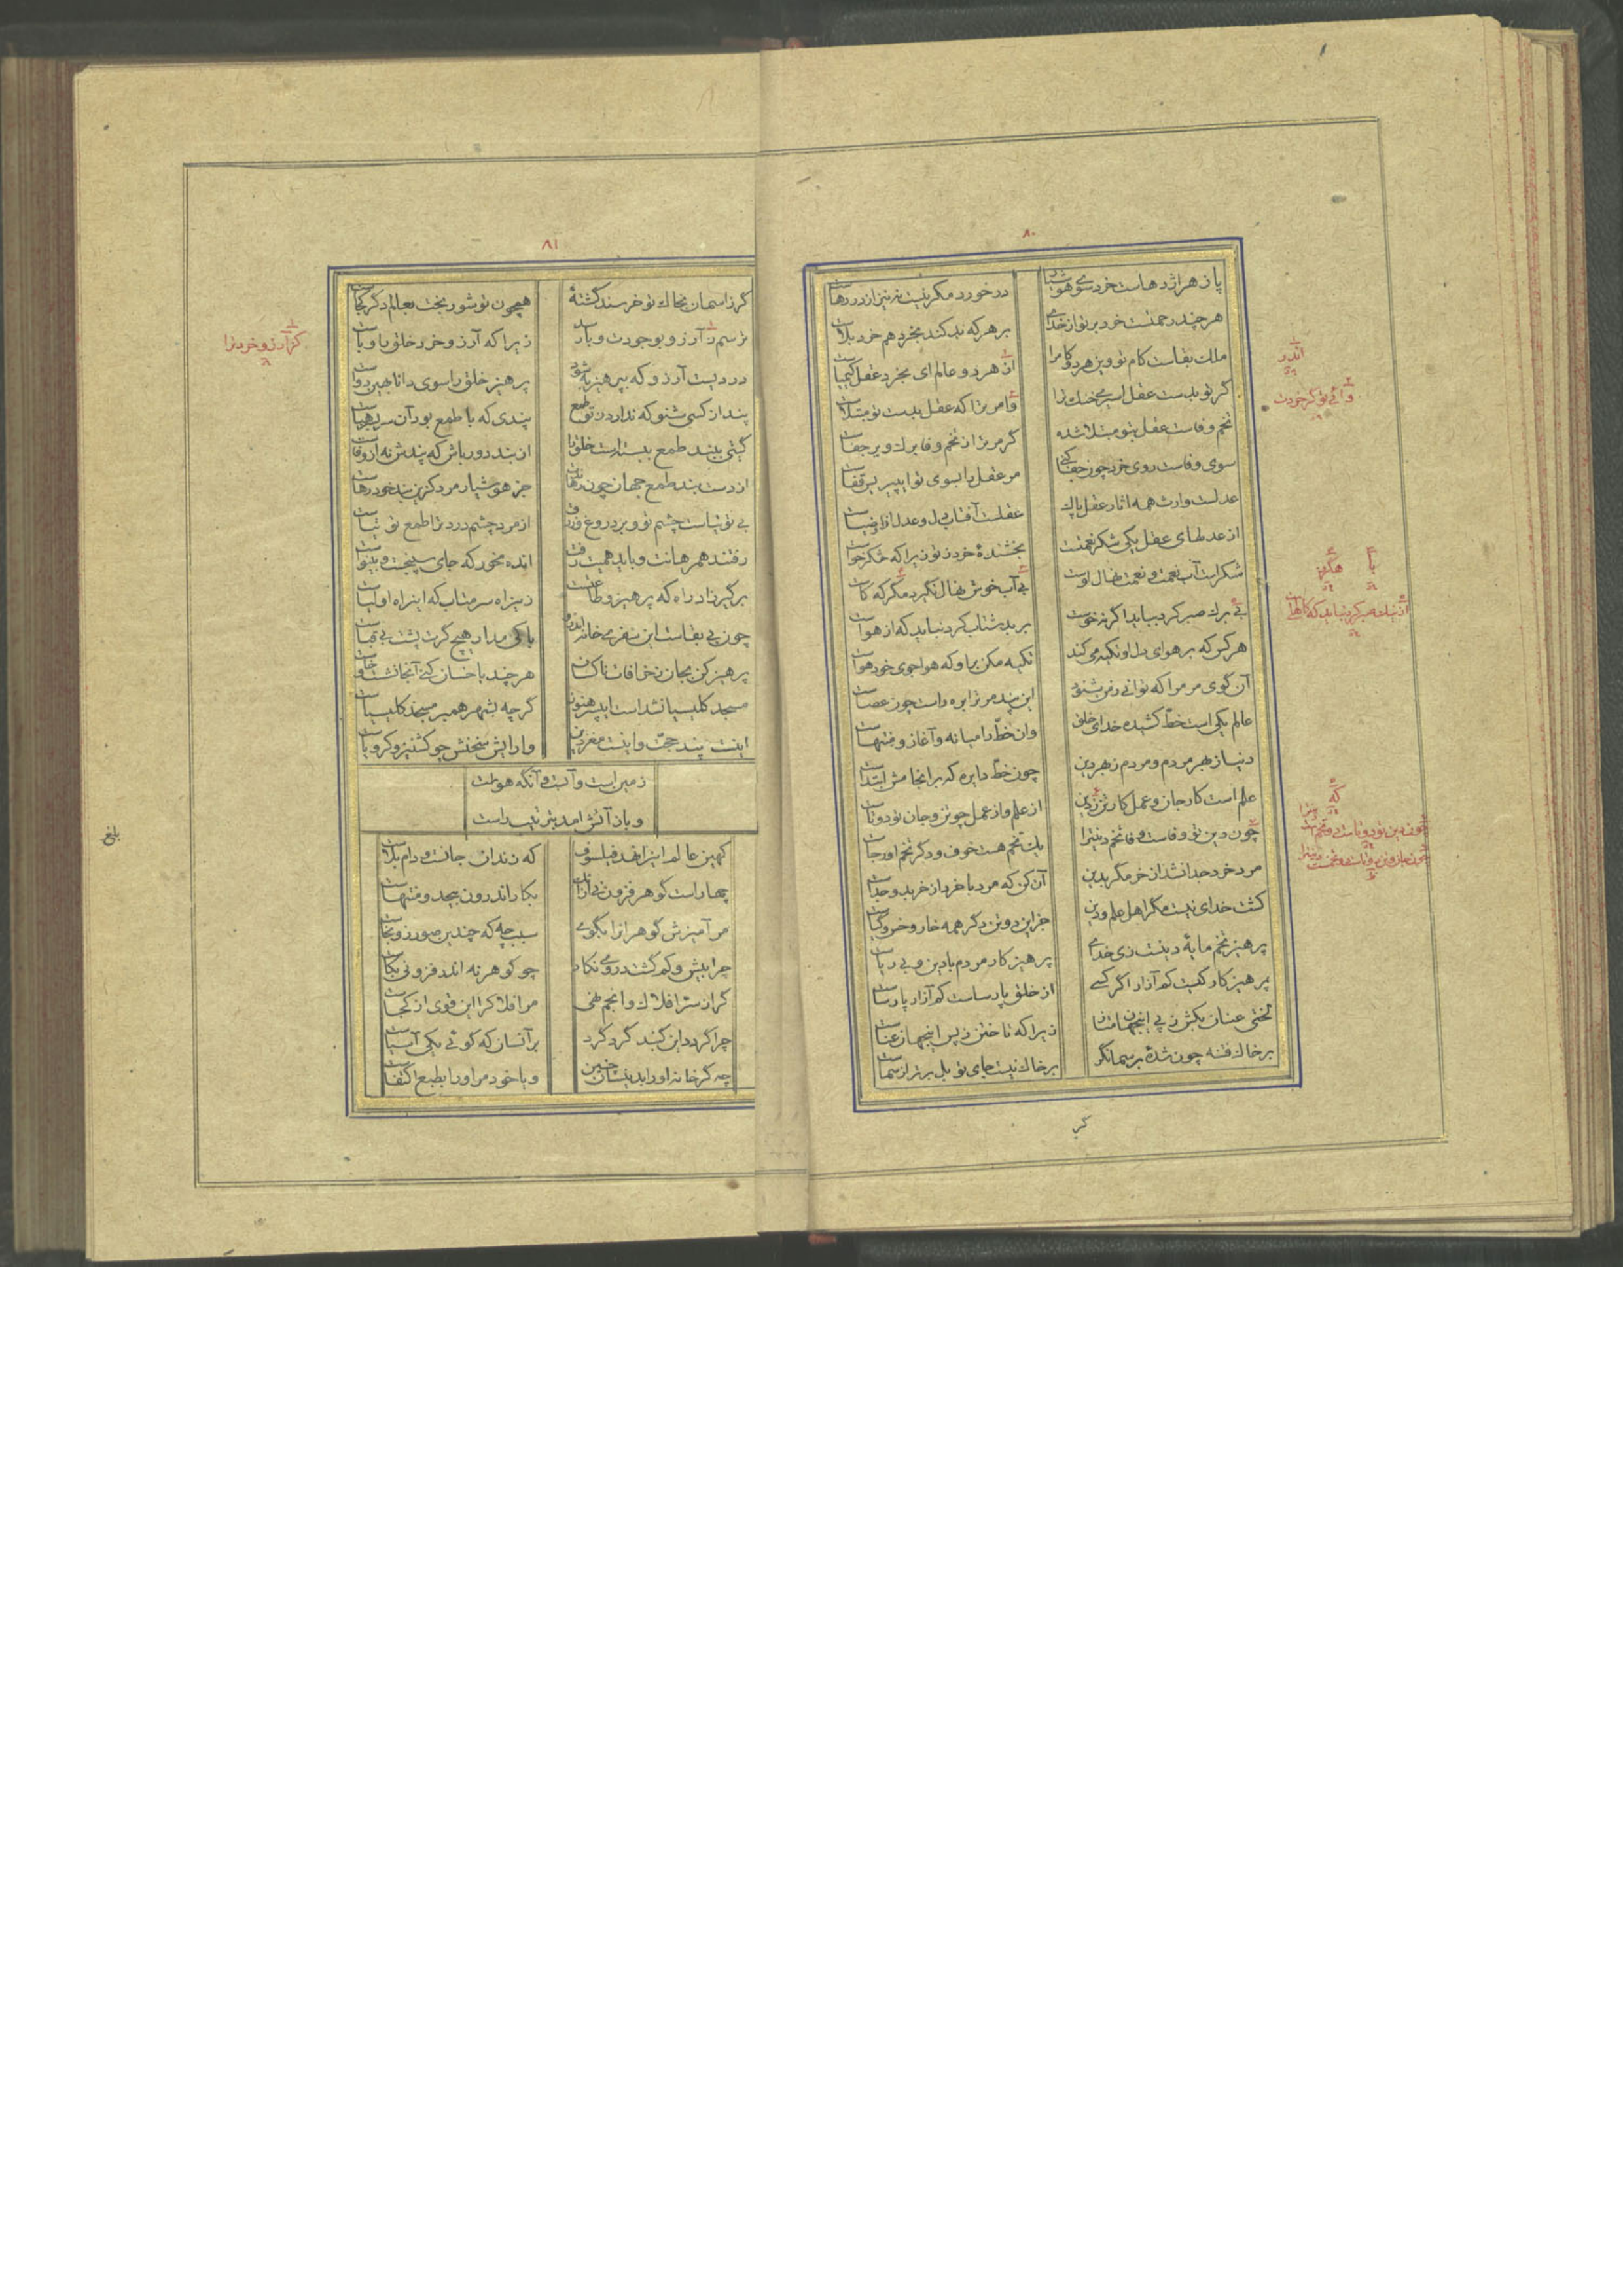 ٨٠
پازهر اژدهاست خرد سوی هوشیار
در خورد مکر نیست نه نیز از در دهاست
هر چند رحمتست خرد بر تو از خدای
بر هر که بد کند بخرد هم خرد بلاست
ملک بقاست کام تو وین هر دو کام را
اندر
از هر دو عالم ای بخرد عقل کیمیاست
گر تو بدست عقل اسیری خنک ترا
وای تو گر خردت
وا مر ترا که عقل بدست تو مبتلاست
تخم وفاست عقل بتو مبتلا شده
گر مر ترا ز تخم وفا برگ و بر جفاست
سوی وفاست روی خرد چون جفا کنی
مر عقل را بسوی تو ای پیر بر قفاست
عدلست وارث همه اثار عقل پاک
عقلست آفتاب دل و عدل ازو ضیاست
از عدلهای عقل یکی شکر نعمتست
بخشندهٔ خرد ز تو زیرا که شکر خواست
شکر است آب نعمت و نعمت نهال اوست
با
هگرز
بی آب خوش نهال نگیرد مگر که کاست
بی برگ صبر کرد بباید اگر نه خوست
بر بد شتاب کرد نباید که از هواست
هر کس که بر هوای دل او تکیه می کند
تکیه مکن برو که هوا جوی خود هواست
آن گوی مر مرا که توانی ز من شنود
این پند مر ترا بره راست چون عصاست
عالم یکی است خط کشیده خدای خلق
وان خط را میانه و آغاز و منتهاست
دنیا ز بهر مردم و مردم ز بهر دین
چون خط دایره که بر انجامش ابتداست
علم است کار جان و عمل کار تن ز دین
که
از علم و از عمل چو تن و جان تو دوتاست
چون دین تو وفاست و فا تخم دینترا
یک تخم هست خوف و دگر تخم او رجاست
مرد خرد جدا نشد از خر مگر بدین
آن کن که مرد با خرد از خر بدو جداست
کشت خدای نیست مگر اهل علم و دین
جز این دو تن دگر همه خار و خس و گیاست
پرهیز تخم مایهٔ دینست زی خدای
پرهیزکار مردم با دین و بی ریاست
پرهیزکار کیست کم آزار اگر کسی
از خلق پارساست کم آزار پارساست
لختی عنان بکش ز پی اینجهان متاز
زیرا که تاختن ز پس اینجهان عناست
بر خاک فتنه چون شدهٔ بر سما نگر
بر خاک نیست جای تو بل برتر از سماست
گر
٨١
گر ز اسمان بخاک تو خرسند گشتهٔ
همچون تو شوربخت بعالم دگر کجاست
ترسم ز آرزو بوجودت وبا رسد
زیرا که آرزو و خرد خلق را وباست
کز آرزو خرد ترا
دردیست آرزو که بپرهیز به شود
پرهیز خلق را سوی دانا بهین دواست
پند از کسی شنو که ندارد ز تو طمع
پندی که با طمع بود آن سر بسر هباست
گیتی ببند طمع ببستست خلق را
از بند دور باش که پندش نه از وفاست
از دست بند طمع جهان چون رهاندت
جز هوشیار مرد کزین بند خود رهاست
بی توتیاست چشم تو و بر دروغ و زرق
از مرد چشم درد ترا طمع توتیاست
رفتند همرهانت و بباید همیت رفت
انده مخور که جای سپنجست و بینواست
برگیر زاد راه که پرهیز و طاعتست
زین راه سر متاب که این راه اولیاست
چون بی بقاست این سفری خانه اندرو
باکی مدار هیچ گرت پشت بی قباست
پرهیز کن بجان ز خرافات ناکسان
هر چند با خسان کنی آنجا نشست و خاست
مسجد کلیسیا نشد است ای پسر هنوز
گر چه بشهر همبر مسجد کلیسیاست
اینت پند حجت و اینت مغز دین
وارایش سخنش چو کشنیز و کرویاست
زمین است و آبست و آنگه هواست
و باز آتش امد بترتیب راست
کهین عالم اینرا نهد فیلسوف
که زندان جانست و دام بلاست
چهار است گوهر فزون نی از ان
بکار اندرون بیحد و منتهاست
مر آمیزش گوهران را بگوی
سبب چه که چندین صور زو بخاست
چرا بیش و کم گشتشان روی کار
چو گوهر نه اندر فزونی بکاست
گر از سر افلاک و انجم طنی
مر افلاک را این قوی از کجاست
چرا گردد این گنبد گرد گرد
بر آنسان که گوئی یکی آسیاست
چه گر خانه او را بدینسان چنین
و با خود مر او را بطبع اکتفاست
بلغ